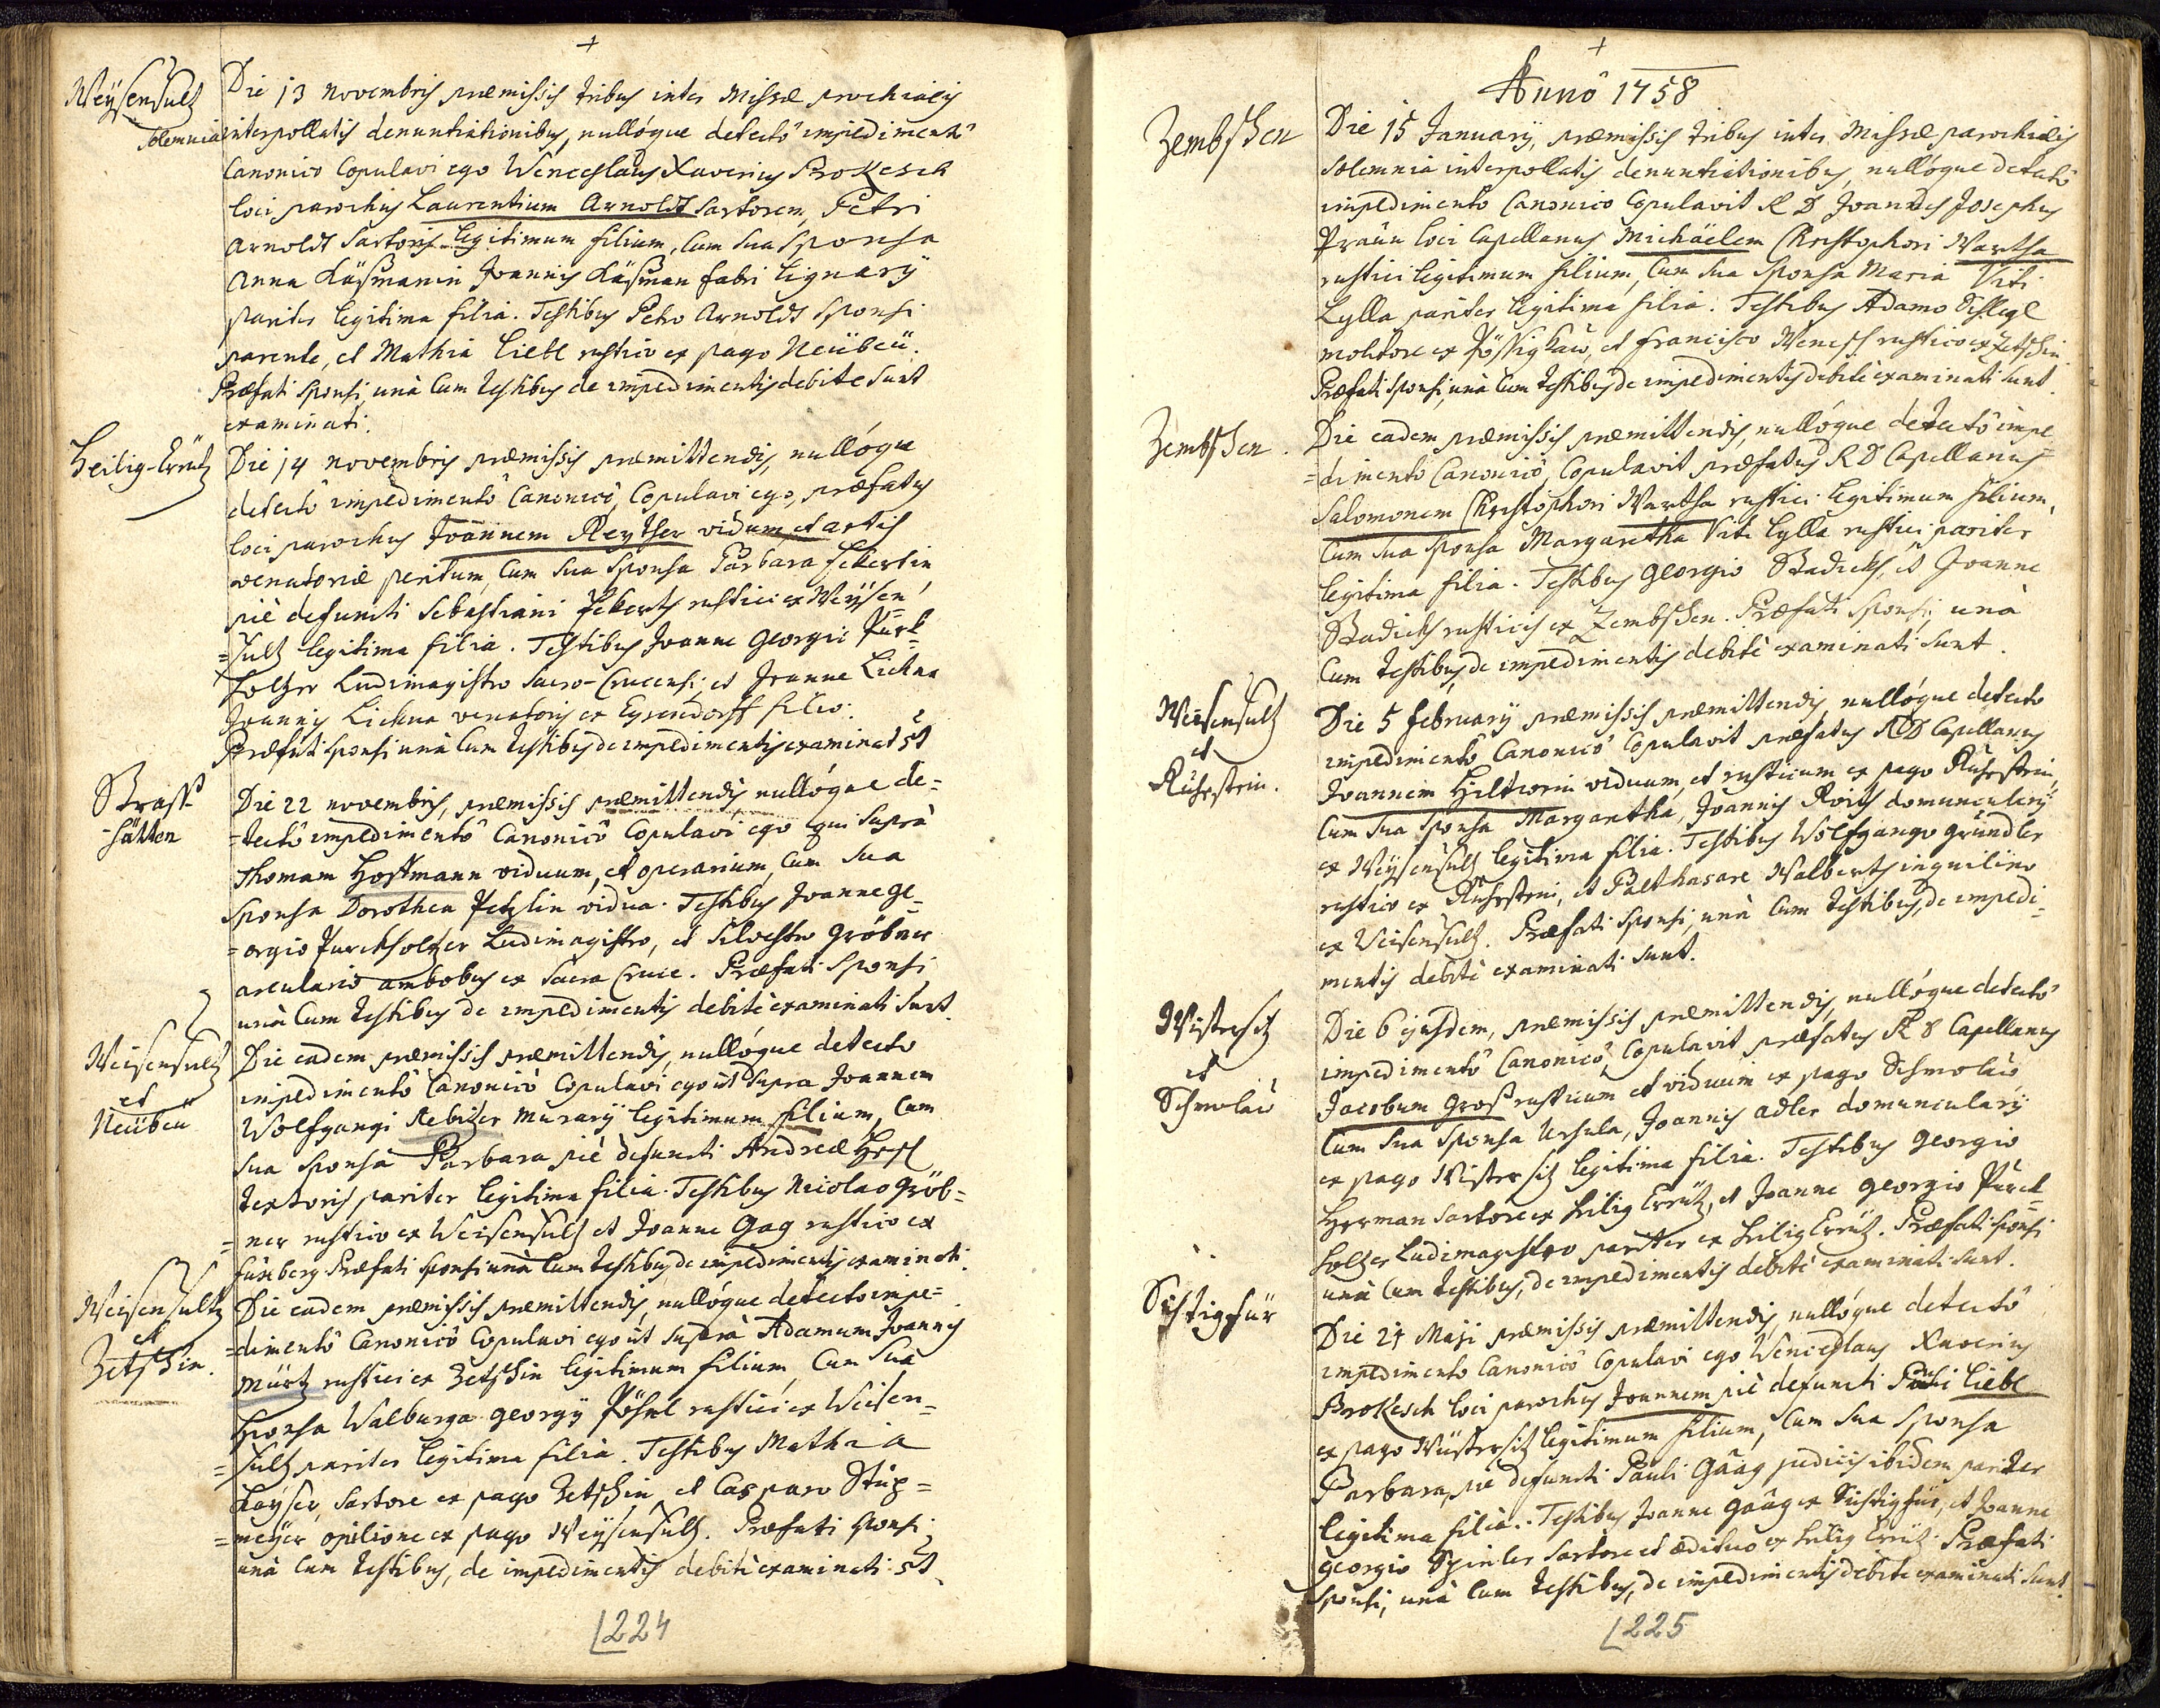 +
Weÿsensultz
Die 13 novembris præmissis tribus inter Missæ parochialis
solemnia interpollatis denuntiationibus, nullóque detectô impedimentô
Canonico Copulavi ego Wenceslaus Xaverius Prokesch
loci parochus Laurentium Arnoldt sartorem, Petri
Arnoldt sartoris legitimum filium, cum sua sponsa
Anna Käsmanin Joannis Käsman fabri lignarÿ
pariter legitima filia. Testibus Petro Arnoldt sponsi
parente, et Mathia Liebl rustico ex pago Neübeü.
Præfati sponsi, unà cum testibus de impedimentis debite sunt
examinati.
Heilig-Creütz
Die 14 novembris præmissis præmittendis, nullóque
detectô impedimentô Canonicô, Copulavi ego, præfatus
loci parochus Joannem Reyther viduum et artis
venatoriæ peritum, cum sua sponsa Barbara Eckertin
piè defuncti Sebastiani Eckerts rustici ex Weÿsen
=sultz legitima filia. Testibus Joanne Georgio Purk=
holtzer Ludimagistro Sacro-Crucensi, et Joanne Lickna
Joannis Lickna venatoris ex Eysendorff filio.
Præfati sponsi unà cum testibus de impedimentis examinati st
Strass-
hütten
Die 22 novembris, præmissis præmittendis nullóque de=
=tectô impedimentô Canonicô Copulavi ego qui suprà
Thomam Hoffmann viduum, et operarium, cum sua
sponsa Dorothea Petzlin vidua. Testibus Joanne Ge=
=orgio Purckholtzer Ludimagistro, et Silvestro Gröbner
arculario ambobus ex Sacra Cruce. Præfati sponsi
unà cum testibus de impedimentis debitè examinati sunt.
Weisensultz
et
Neübeü
Die eadem præmissis præmittendis, nullóque detecto
impedimentô Canonicô Copulavi ego ut supra Joannem
Wolfgangi Rebitzer murarÿ legitimum filium, cum
sua sponsa Barbara piè defuncti Andreæ Hesl
textoris pariter legitima filia. Testibus Nicolao Gröb=
=ner rustico ex Weisensultz et Joanne Gag rustico ex
Fuxberg Præfati sponsi unà cum testibus de impedimentis examinati.
Weisensultz
et
Zetschin.
Die eadem præmissis præmittendis, nullóque detecto impe=
=dimentô Canonicô Copulavi ego ut suprà Adamum Joannis
Mürtz rustici ex Zetschin legitimum filium, cum sua
sponsa Walburga Georgÿ Pösel rustici ex Weisen=
=sultz pariter legitima filia. Testibus Mathia
Kayser, sartore ex pago Zetschin, et Casparo Stup=
=meÿer opilione ex pago Weÿsensultz. Præfati sponsi
unà cum testibus, de impedimentis debitè examinati st
224
+
Annô 1758
Zembschen
Die 15 Januarÿ, præmissis tribus inter Missæ parochialis
solemnia interpollatis denuntiationibus, nullóque detectô
impedimento Canonico Copulavit R D Joannes Josephus
Praün loci Capellanus Michäelem Christophori Wartha
rustici legitimum filium, cum sua sponsa Maria Viti
Lylla pariter legitima filia. Testibus Adamo Schlegl
molitore ex Pössigkau, et Francisco Wenesch rustico ex Zetschin
Præfati sponsi, unà cum testibus de impedimentis debitè examinati sunt.
Zembschen
Die eadem præmissis præmittendis, nullóque detectô impe=
=dimento Canonicô, Copulavit præfatus R D Capellanus
Salomonem Christophori Wartha rustici legitimum filium,
cum sua sponsa Margaretha Viti Lylla rustici pariter
legitima filia. Testibus Georgio Stadicks, et Joanne
Stadicks rusticis ex Zembschen. Præfati sponsi, unà
cum testibus, de impedimentis debitè examinati sunt.
Weisensultz
et
Ruhestein.
Die 5 Februarÿ præmissis præmittendis nullóque detecto
impedimentô Canonicô Copulavit præfatus R D Capellanus
Joannem Hiltwein viduum, et rusticum ex pago Ruhestein,
cum sua sponsa Margaretha, Joannis Roith domuncularÿ
ex Weÿsensultz legitima filia. Testibus Wolfgango Gründler
rustico ex Ruhestein, et Balthasare Walberts inquilino
ex Weisensultz. Præfati sponsi, unà cum testibus, de impedi=
mentis debitè examinati sunt.
Wistersitz
et
Schmolau
Die 6 ejusdem, præmissis præmittendis, nullóque detectô
impedimentô Canonicô, Copulavit præfatus R D Capellanus
Jacobum Gross rusticum et viduum ex pago Schmolau
cum sua sponsa Ursula, Joannis Adler domuncularÿ
ex pago Wistersitz legitima filia. Testibus Georgio
Herman sartore ex Heilig Creütz, et Joanne Georgio Purck=
holtzer Ludimagistro pariter ex Heilig Creütz. Præfati sponsi
unà cum testibus, de impedimentis debitè examinati sunt.
Sichtigfür
Die 24 Maji præmissis præmittendis, nullóque detectô
impedimento Canonicô Copulavi ego Wenceslaus Xaverius
Prokesch loci parochus Joannem piè defuncti Pauli Liebl
ex pago Wüstersitz legitimum filium, cum sua sponsa
Barbara, piè defuncti Pauli Gaäg judicis ibidem pariter
legitima filia. Testibus Joanne Gaäg ex Sichtigfür, et Joanne
Georgio Spinler sartore et ædituo ex Heilig Creütz. Præfati
sponsi, unà cum testibus, de impedimentis debitè examinati sunt.
225